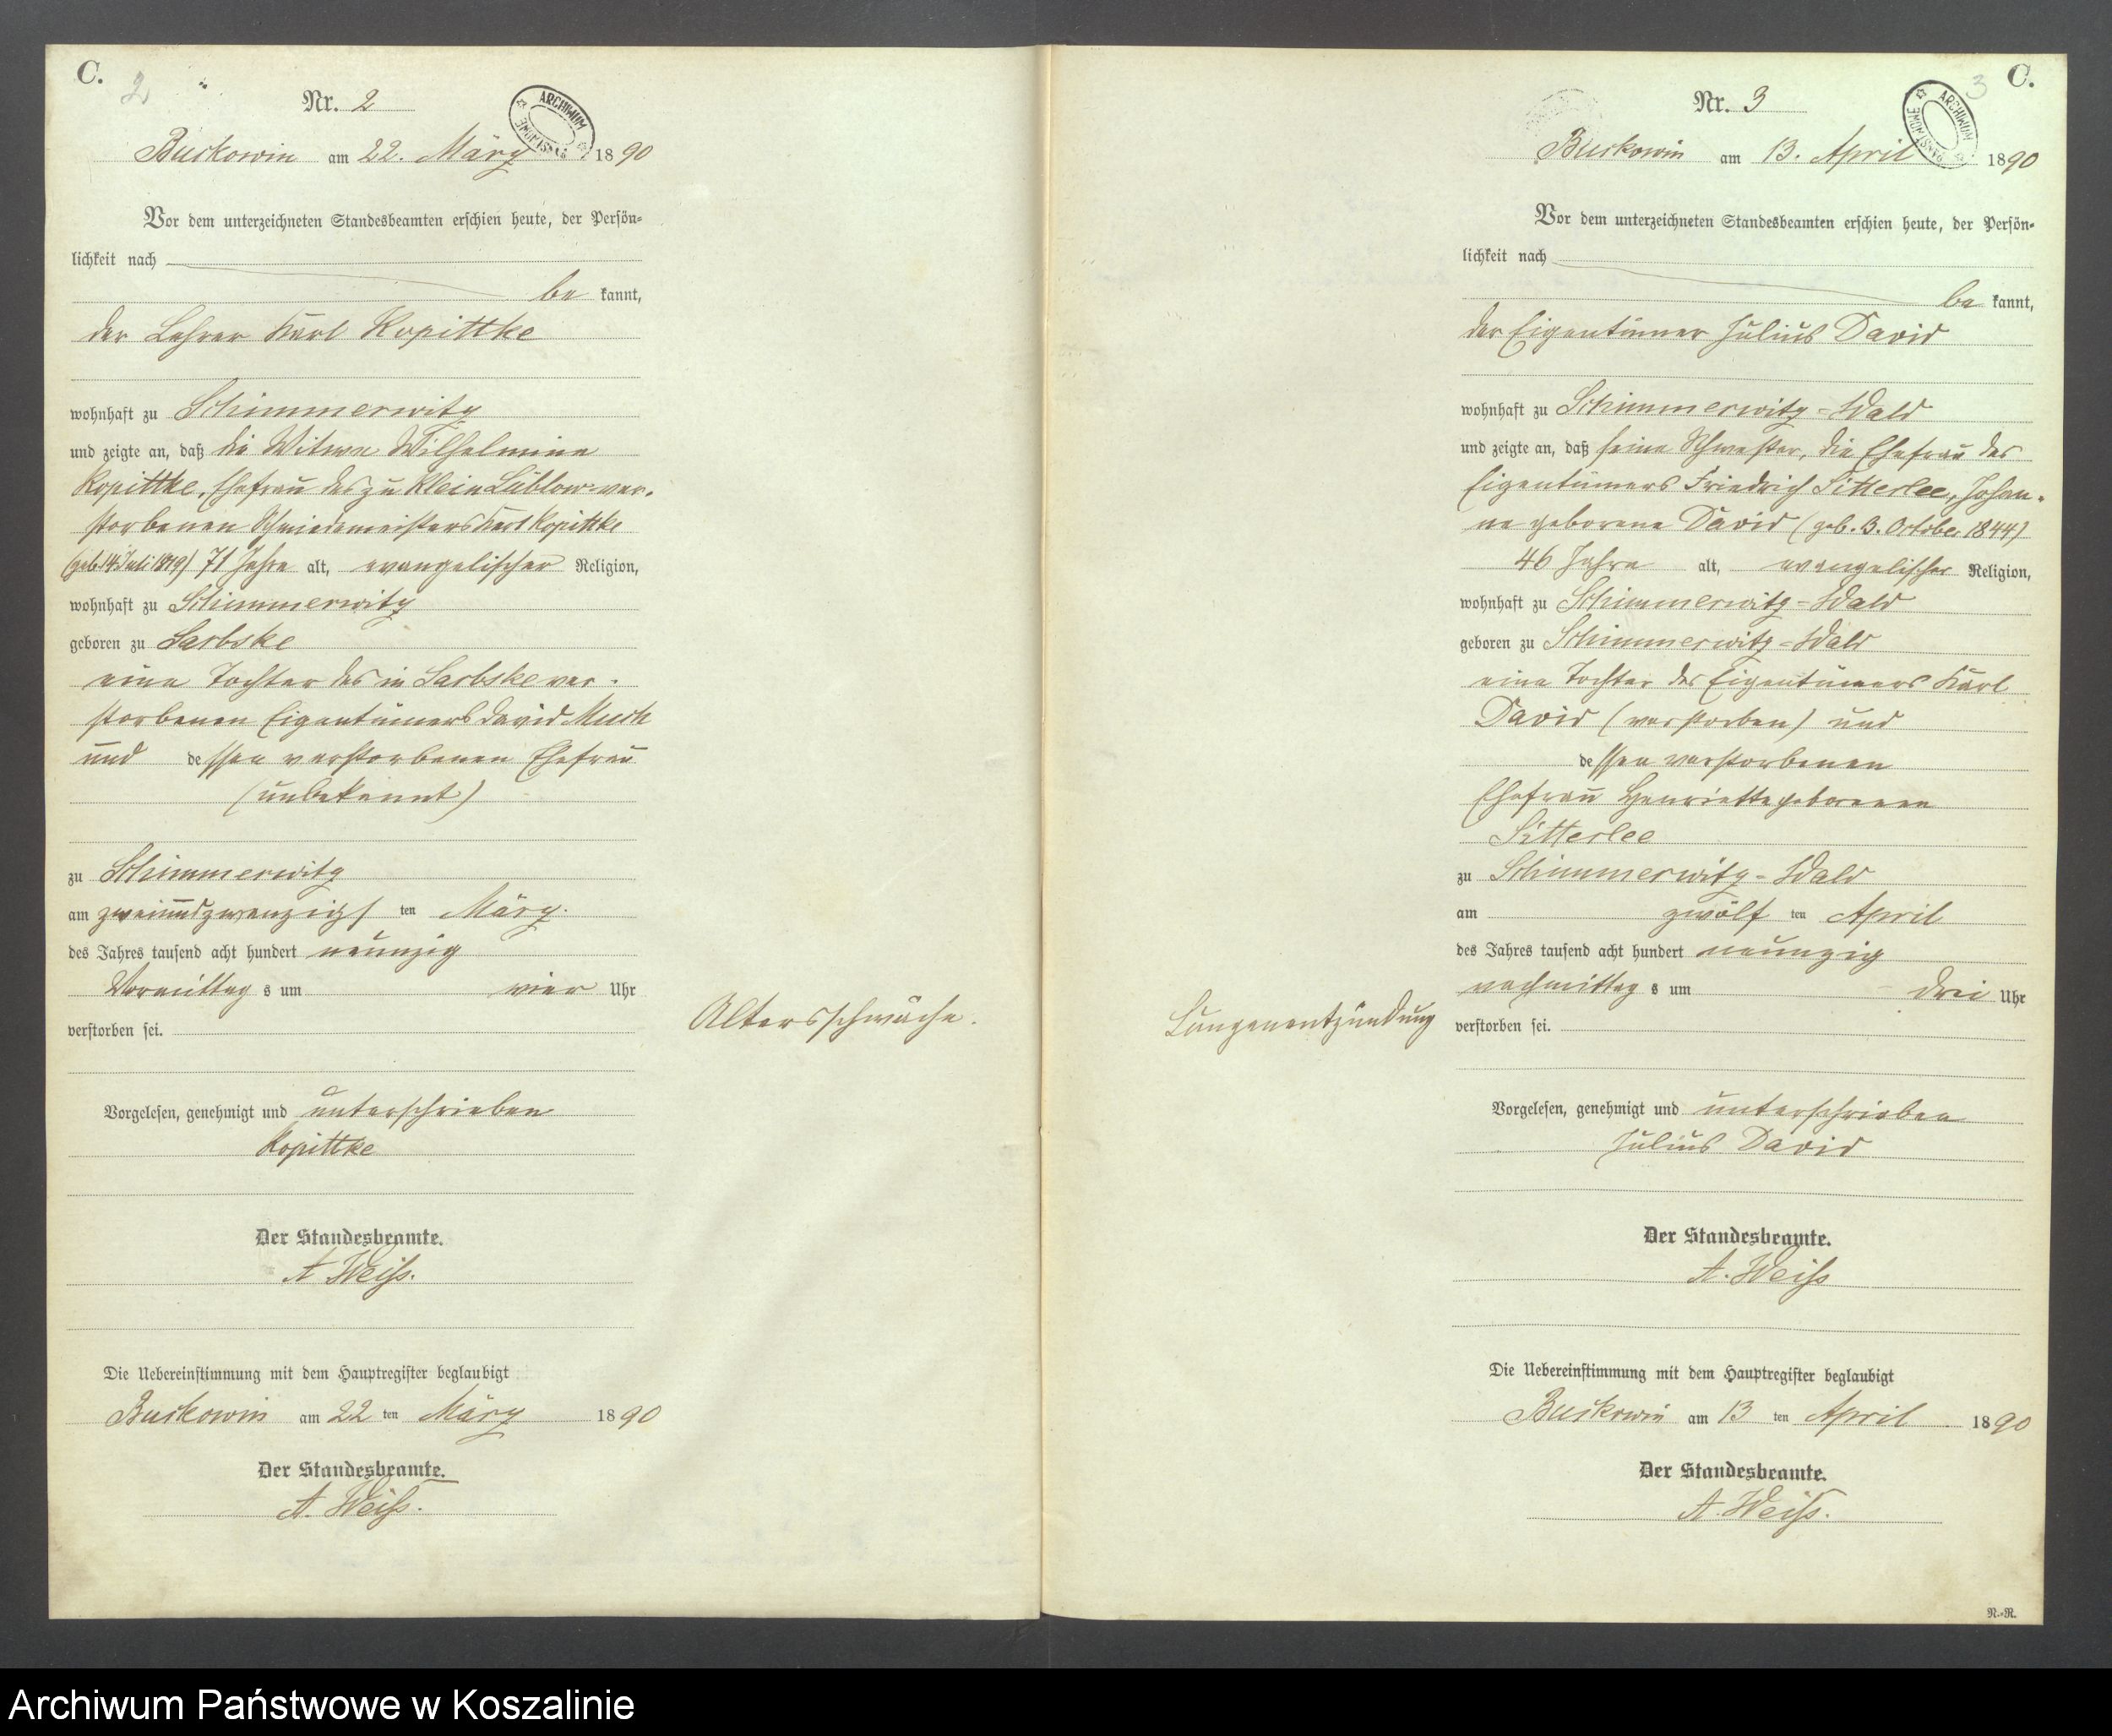 C.
2
Nr. 2
ARCHIWUM PAŃSTWOWE
Buckowin am 22. März 1890
Vor dem unterzeichneten Standesbeamten erschien heute, der Persön-
lichkeit nach
be kannt,
der Lehrer Karl Kopittke
wohnhaft zu Schimmerwitz
und zeigte an, daß die Witwe Wilhelmine
Kopittke, Ehefrau des zu Klein Lüblow ver-
storbenen Schmiedemeisters Karl Kopittke
(geb. 14. Juli 1819) 71 Jahre alt, evangelischer Religion,
wohnhaft zu Schimmerwitz
geboren zu Sarbske
eine Tochter des in Sarbske ver-
storbenen Eigentümers David Much
und dessen verstorbenen Ehefrau
(unbekannt)
zu Schimmerwitz
am zweiundzwanzigs ten März
des Jahres tausend acht hundert neunzig
Vormittag s um vier Uhr
verstorben sei.
Altersschwäche.
Vorgelesen, genehmigt und unterschrieben
Kopittke
Der Standesbeamte.
A Weiß.
Die Uebereinstimmung mit dem Hauptregister beglaubigt
Buckowin am 22 ten März 1890
Der Standesbeamte.
A. Weiß.
C.
3
Nr. 3
ARCHIWUM PAŃSTWOWE
Buckowin am 13. April 1890
Vor dem unterzeichneten Standesbeamten erschien heute, der Persön-
lichkeit nach
be kannt,
der Eigentümer Julius David
wohnhaft zu Schimmerwitz-Wald
und zeigte an, daß seine Schwester, die Ehefrau des
Eigentümers Friedrich Sitterlee, Johan-
ne geborene David (geb. 3. October 1844)
46 Jahre alt, evangelischer Religion,
wohnhaft zu Schimmerwitz-Wald
geboren zu Schimmerwitz-Wald
eine Tochter des Eigentümers Karl
David (verstorben) und
dessen verstorbenen
Ehefrau Henriette geborenen
Sitterlee
zu Schimmerwitz-Wald
am zwölf ten April
des Jahres tausend acht hundert neunzig
nachmittag s um drei Uhr
Lungenentzündung
verstorben sei.
Vorgelesen, genehmigt und unterschrieben
Julius David
Der Standesbeamte.
A. Weiß
Die Uebereinstimmung mit dem Hauptregister beglaubigt
Buckowin am 13 ten April 1890
Der Standesbeamte.
A. Weiß.
N.-N.
Archiwum Państwowe w Koszalinie